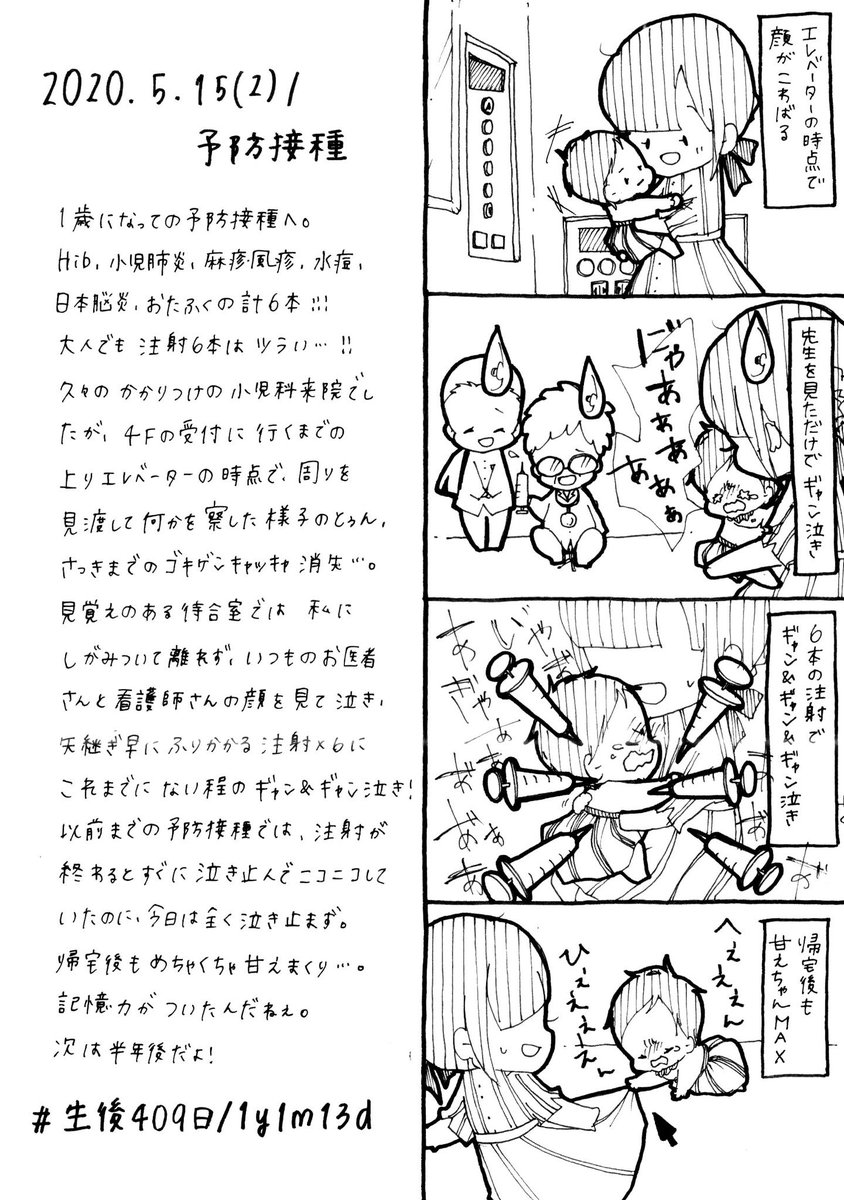 2020.5.15(2)/
予防接種
1歳になっての予防接種へ。
Hib、小児肺炎、麻疹風疹、水痘、
日本脳炎、おたふくの計6本!!!
大人でも注射6本はツラい…!!
久々のかかりつけの小児科来院でし
たが、4Fの受付に行くまでの
上りエレベーターの時点で、周りを
見渡して何かを察した様子のとぅん、
さっきまでのゴキゲンキャッキャ消失…。
見覚えのある待合室では 私に
しがみついて離れず、いつものお医者
さんと看護師さんの顔を見て泣き、
矢継ぎ早にふりかかる注射×6に
これまでにない程のギャン&ギャン泣き!
以前までの予防接種では、注射が
終わるとすぐに泣き止んでニコニコして
いたのに、今日は全く泣き止まず。
帰宅後もめちゃくちゃ甘えまくり…。
記憶力がついたんだねぇ。
次は半年後だよ!
#生後409日/1y1m13d
エレベーターの時点で
顔がこわばる
先生を見ただけでギャン泣き
にゃあぁぁぁ
あぁぁぁ
6本の注射で
ギャン&ギャン&ギャン泣き
いやぎゃ
帰宅後も
甘えちゃんMAX
へぇぇぇん
ひぃぇぇぇん